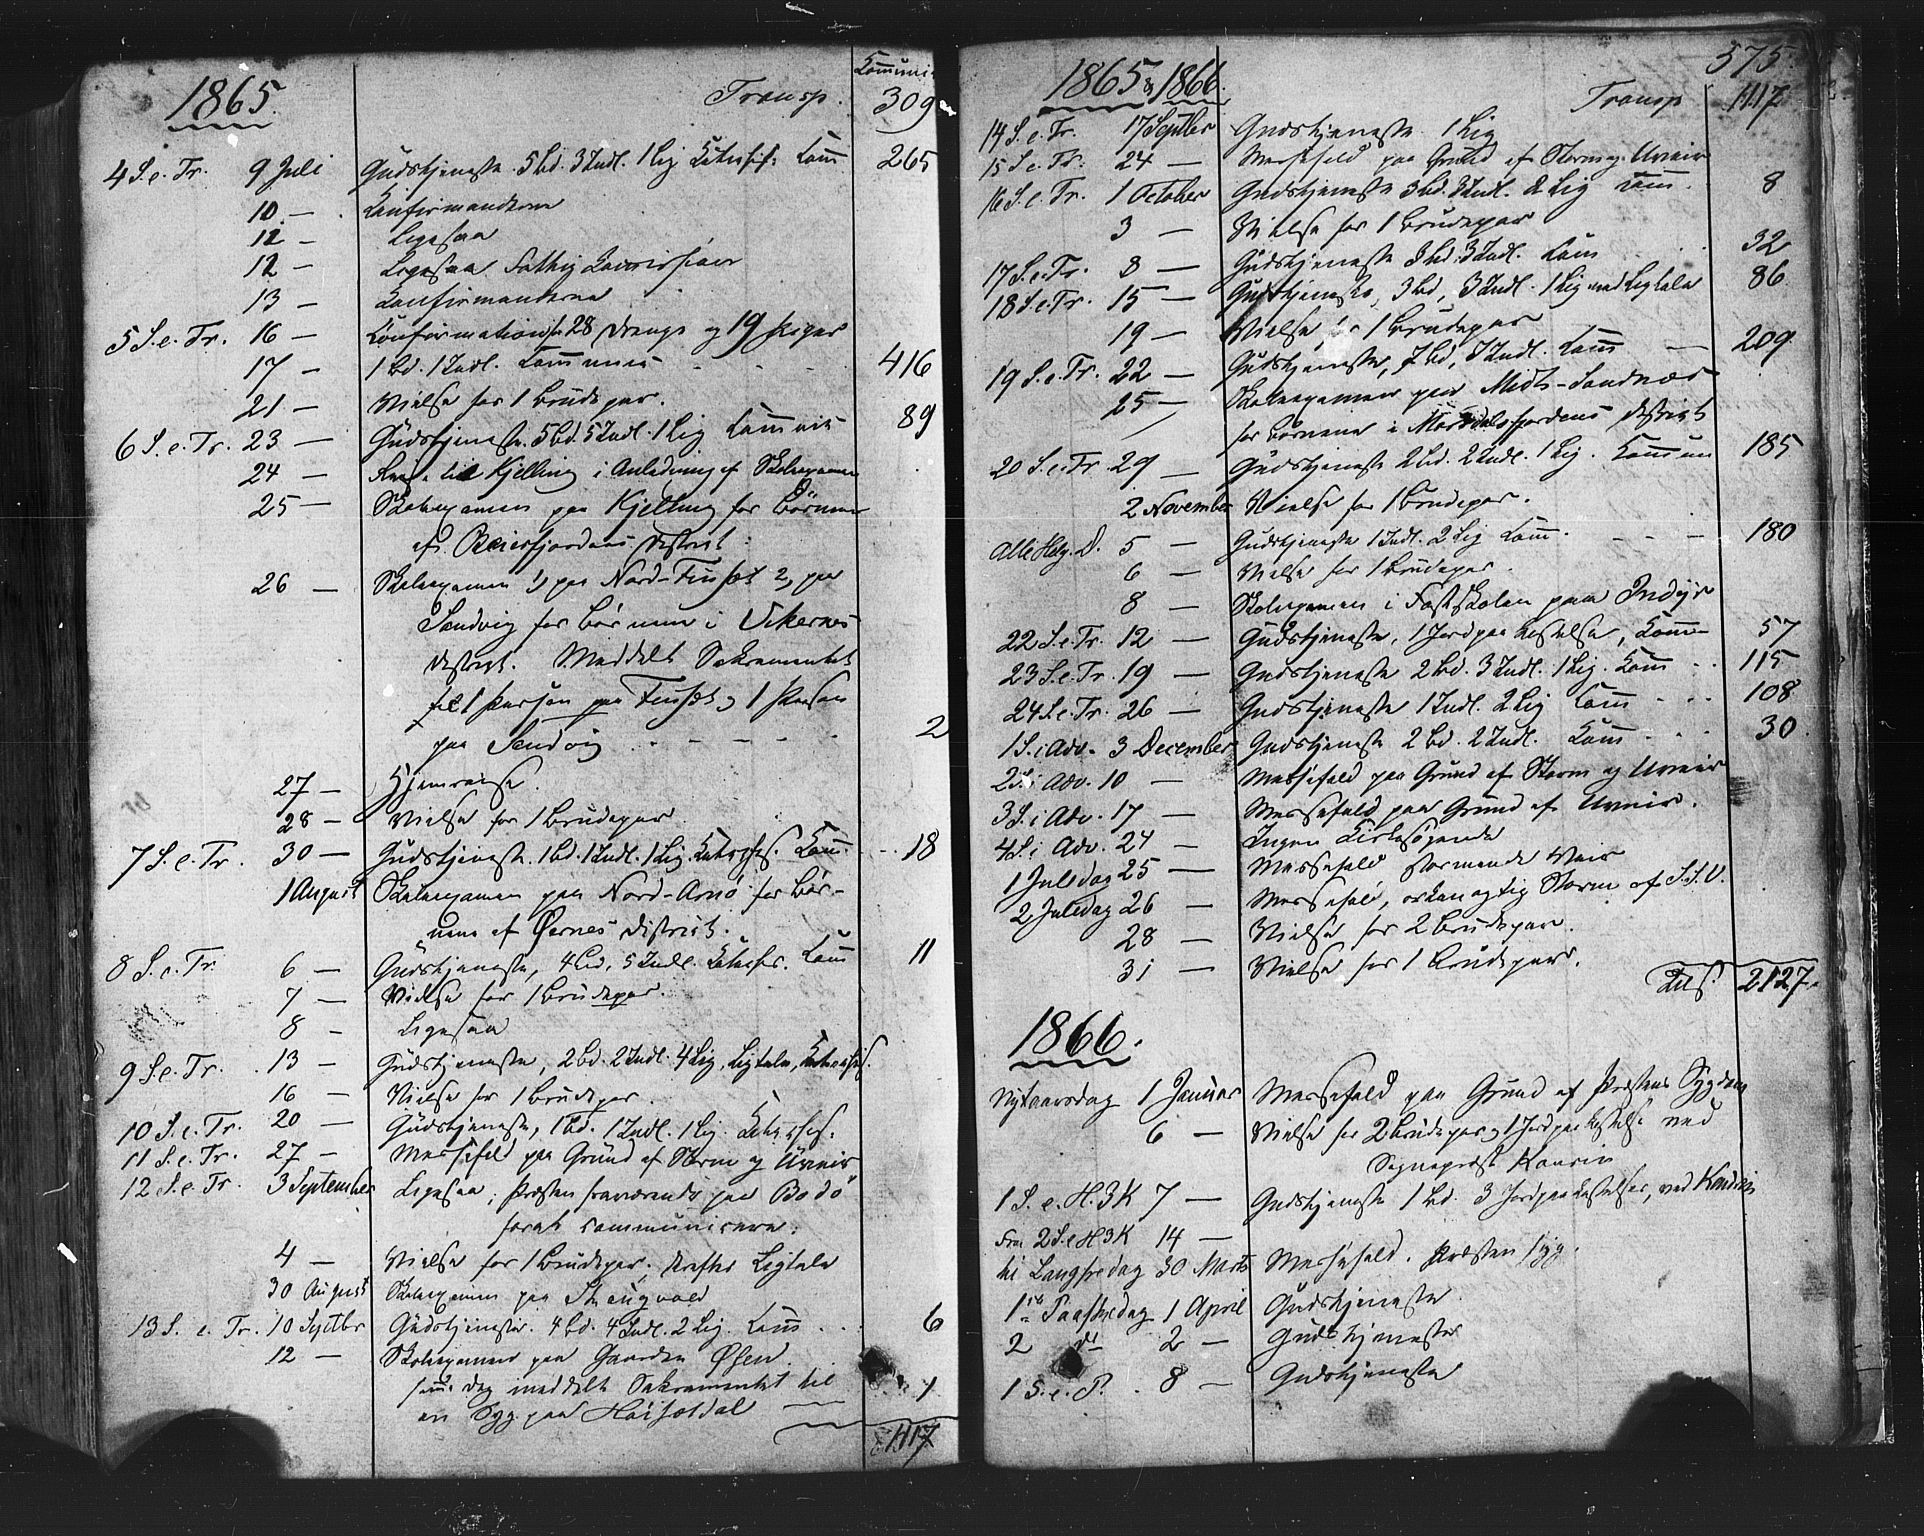 1865.
Communic
Transp. 309
4 S. e. Tr. 9 Juli Gudstjeneste. 5 bd. 3 Indl. 1 Lig Katechis. Com 265
10 — Confirmanderne
12 — Ligesaa
12 — Ligesaa Fattig Commission
13 — Confirmanderne
5 S. e. Tr. 16 — Confirmation 28 Drenge og 19 Piger
17 — 1 bd. 1 Indl. Communion 416
21 — Vielse for 1 Brudepar.
6 S. e. Tr. 23 — Gudstjeneste. 5 bd. 5 Indl. 1 Lig Commun 89
24 — til Kjelling i Anledning af Skolexamen
25 — Skolexamen paa Kjelling for Børnene
af Beierfjordens District.
26 — Skolexamen 1) paa Nord-Finset 2) paa
Sandvig for Børnene i Vikernes
District. Meddelt Sakramentet
til 1 Person paa Finset og 1 Person
paa Sandvig 2
27 — Hjemreise.
28 — Vielse for 1 Brudepar
7 S. e. Tr. 30 — Gudstjeneste. 1 bd. 1 Indl. 1 Lig. Katechis. Com. 18
1 August Skolexamen paa Nord-Arnø for Bør-
nene af Ørnes District.
8 S. e. Tr. 6 — Gudstjeneste, 4 bd. 5 Indl. Katechis. Com 11
7 — Vielse for 1 Brudepar.
8 — Ligesaa
9 S e. Tr. 13 — Gudstjeneste, 2 bd. 2 Indl. 4 Lig, Ligtale, Katechis.
16 — Vielse for 1 Brudepar.
10 S. e. Tr. 20 — Gudstjeneste, 1 bd. 1 Indl. 1 Lig. Katechis.
11 S. e. Tr. 27 — Messefald paa Grund af Storm og Uveir
12 S. e. Tr. 3 September Ligesaa, Præsten fraværende paa Bodø
forat communicere.
4 — Vielse for 1 Brudepar. Ligtale
30 August Skolexamen paa
13 S. e. Tr. 10 Septbr Gudstjeneste. 4 bd. 4 Indl. 2 Lig. Com 6
12 — Skolexamen paa Gaarden Øsen.
s. Dag meddelt Sakramentet til
en Syg paa 1
1117
575.
1865 & 1866.
Transp 1117
14 S. e. Tr. 17 Septber Gudstjeneste 1 Lig
15 S e. Tr. 24 — Messefald paa Grund af Storm og Uveir
16 S. e. Tr. 1 October Gudstjeneste 3 bd. 3 Indl. 2 Lig Com. 8
3 — Vielse for 1 Brudepar
17 S. e. Tr. 8 — Gudstjeneste 3 bd. 3 Indl. Com 32
18 S e. Tr. 15 — Gudstjeneste, 3 bd, 3 Indl. 1 Lig med Ligtale 86
19 — Vielse for 1 Brudepar
19 S. e. Tr. 22 — Gudstjeneste, 7 bd, 7 Indl. Com 209
25 — Skolexamen paa Midt-Sandnæs
for Børnene i Morsdalsfjordens District
20 S. e. Tr 29 — Gudstjeneste 2 bd. 2 Indl. 1 Lig. Commun 185
2 November Vielse for 1 Brudepar.
Alle Helg. D. 5 — Gudstjeneste 1 Indl. 2 Lig Com. 180
6 — Vielse for 1 Brudepar.
8 — Skolexamen i Fastskolen paa Indyr
22 S. e. Tr. 12 — Gudstjeneste, 1 Jordpaakastelse, Com 57
23 S. e. Tr. 19 — Gudstjeneste 2 bd. 3 Indl. 1 Lig. Com 115
24 S. e. Tr. 26 — Gudstjeneste 1 Indl. 2 Lig Com 108
1 S. i Adv. 3 December Gudstjeneste 2 bd. 2 Indl. Com 30
2 S. i Adv. 10 — Messefald paa Grund af Storm og Uveir
3 S. i Adv. 17 — Messefald paa Grund af Uveir.
4 S. i Adv. 24 — Ingen Kirkesøgende
1 Juledag 25 — Messefald stormende Veir
2 Juledag 26 — Messefald, orkanagtig Storm af S.S.V.
28 — Vielse for 2 Brudepar.
31 — Vielse for 1 Brudepar.
2127
1866.
Nytaarsdag 1 Januar Messefald paa Grund af Præstens Sygdom
6 — Vielse for 2 Brudepar og 1 Jordpaakastelse ved
Sognepræst
1 S. e. H. 3 K 7 — Gudstjeneste 1 bd. 3 Jordpaakastelser, ved
Fra 2 S. e H 3 K 14 —
til Langfredag 30 Marts Messefald. Præsten syg.
1ste Paaskedag 1 April Gudstjeneste.
2 do 2 — Gudstjeneste
1 S. e. P. 8 — Gudstjeneste